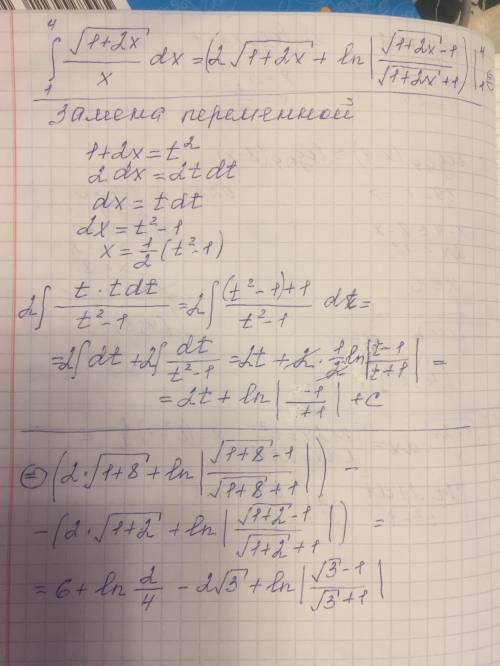 ∫₁⁴ √(1+2x)/x dx = (2√(1+2x) + ln|(√(1+2x) -1)/(√(1+2x) +1)|)|₁⁴
Замена переменной
1+2x = t²
2dx = 2tdt
dx = tdt
2x = t²-1
x = 1/2 (t²-1)
2∫ t·tdt/(t²-1) = 2∫ ((t²-1)+1)/(t²-1) dt =
= 2∫dt + 2∫ dt/(t²-1) = 2t + 2·1/2 ln|(t-1)/(t+1)| =
= 2t + ln|(-1)/(+1)| + C
⊜ (2·√(1+8) + ln|(√(1+8) -1)/(√(1+8) +1)|) -
- (2·√(1+2) + ln|(√(1+2) -1)/(√(1+2) +1)|) =
= 6 + ln 2/4 - 2√3 + ln|(√3 -1)/(√3 +1)|